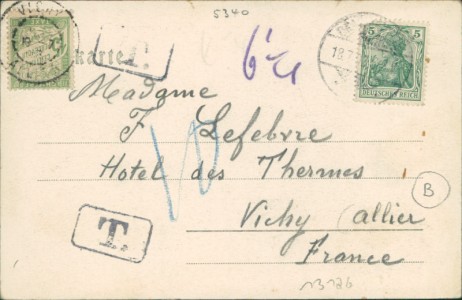 5340
5 5
DEUTSCHES REICH
karte
T.
Madame
F Lefebvre
Hotel des Thermes
Vichy (allier
France
10
T.
B
13126